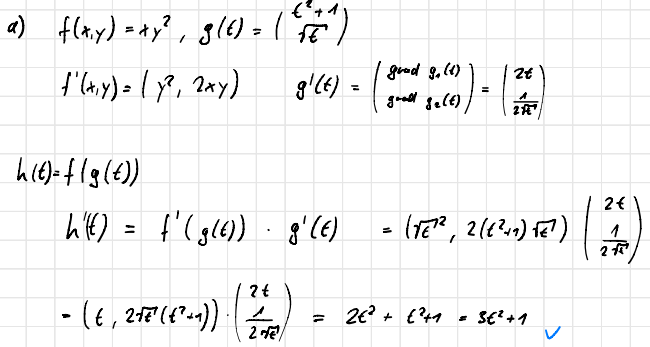 a) f(x,y) = xy², g(t) = (t²+1 / √t)
f'(x,y) = (y², 2xy) g'(t) = (grad g₁(t) / grad g₂(t)) = (2t / 1/(2√t))
h(t) = f(g(t))
h'(t) = f'(g(t)) · g'(t) = (√t², 2(t²+1)√t) (2t / 1/(2√t))
= (t, 2√t(t²+1)) · (2t / 1/(2√t)) = 2t² + t²+1 = 3t²+1 ✓